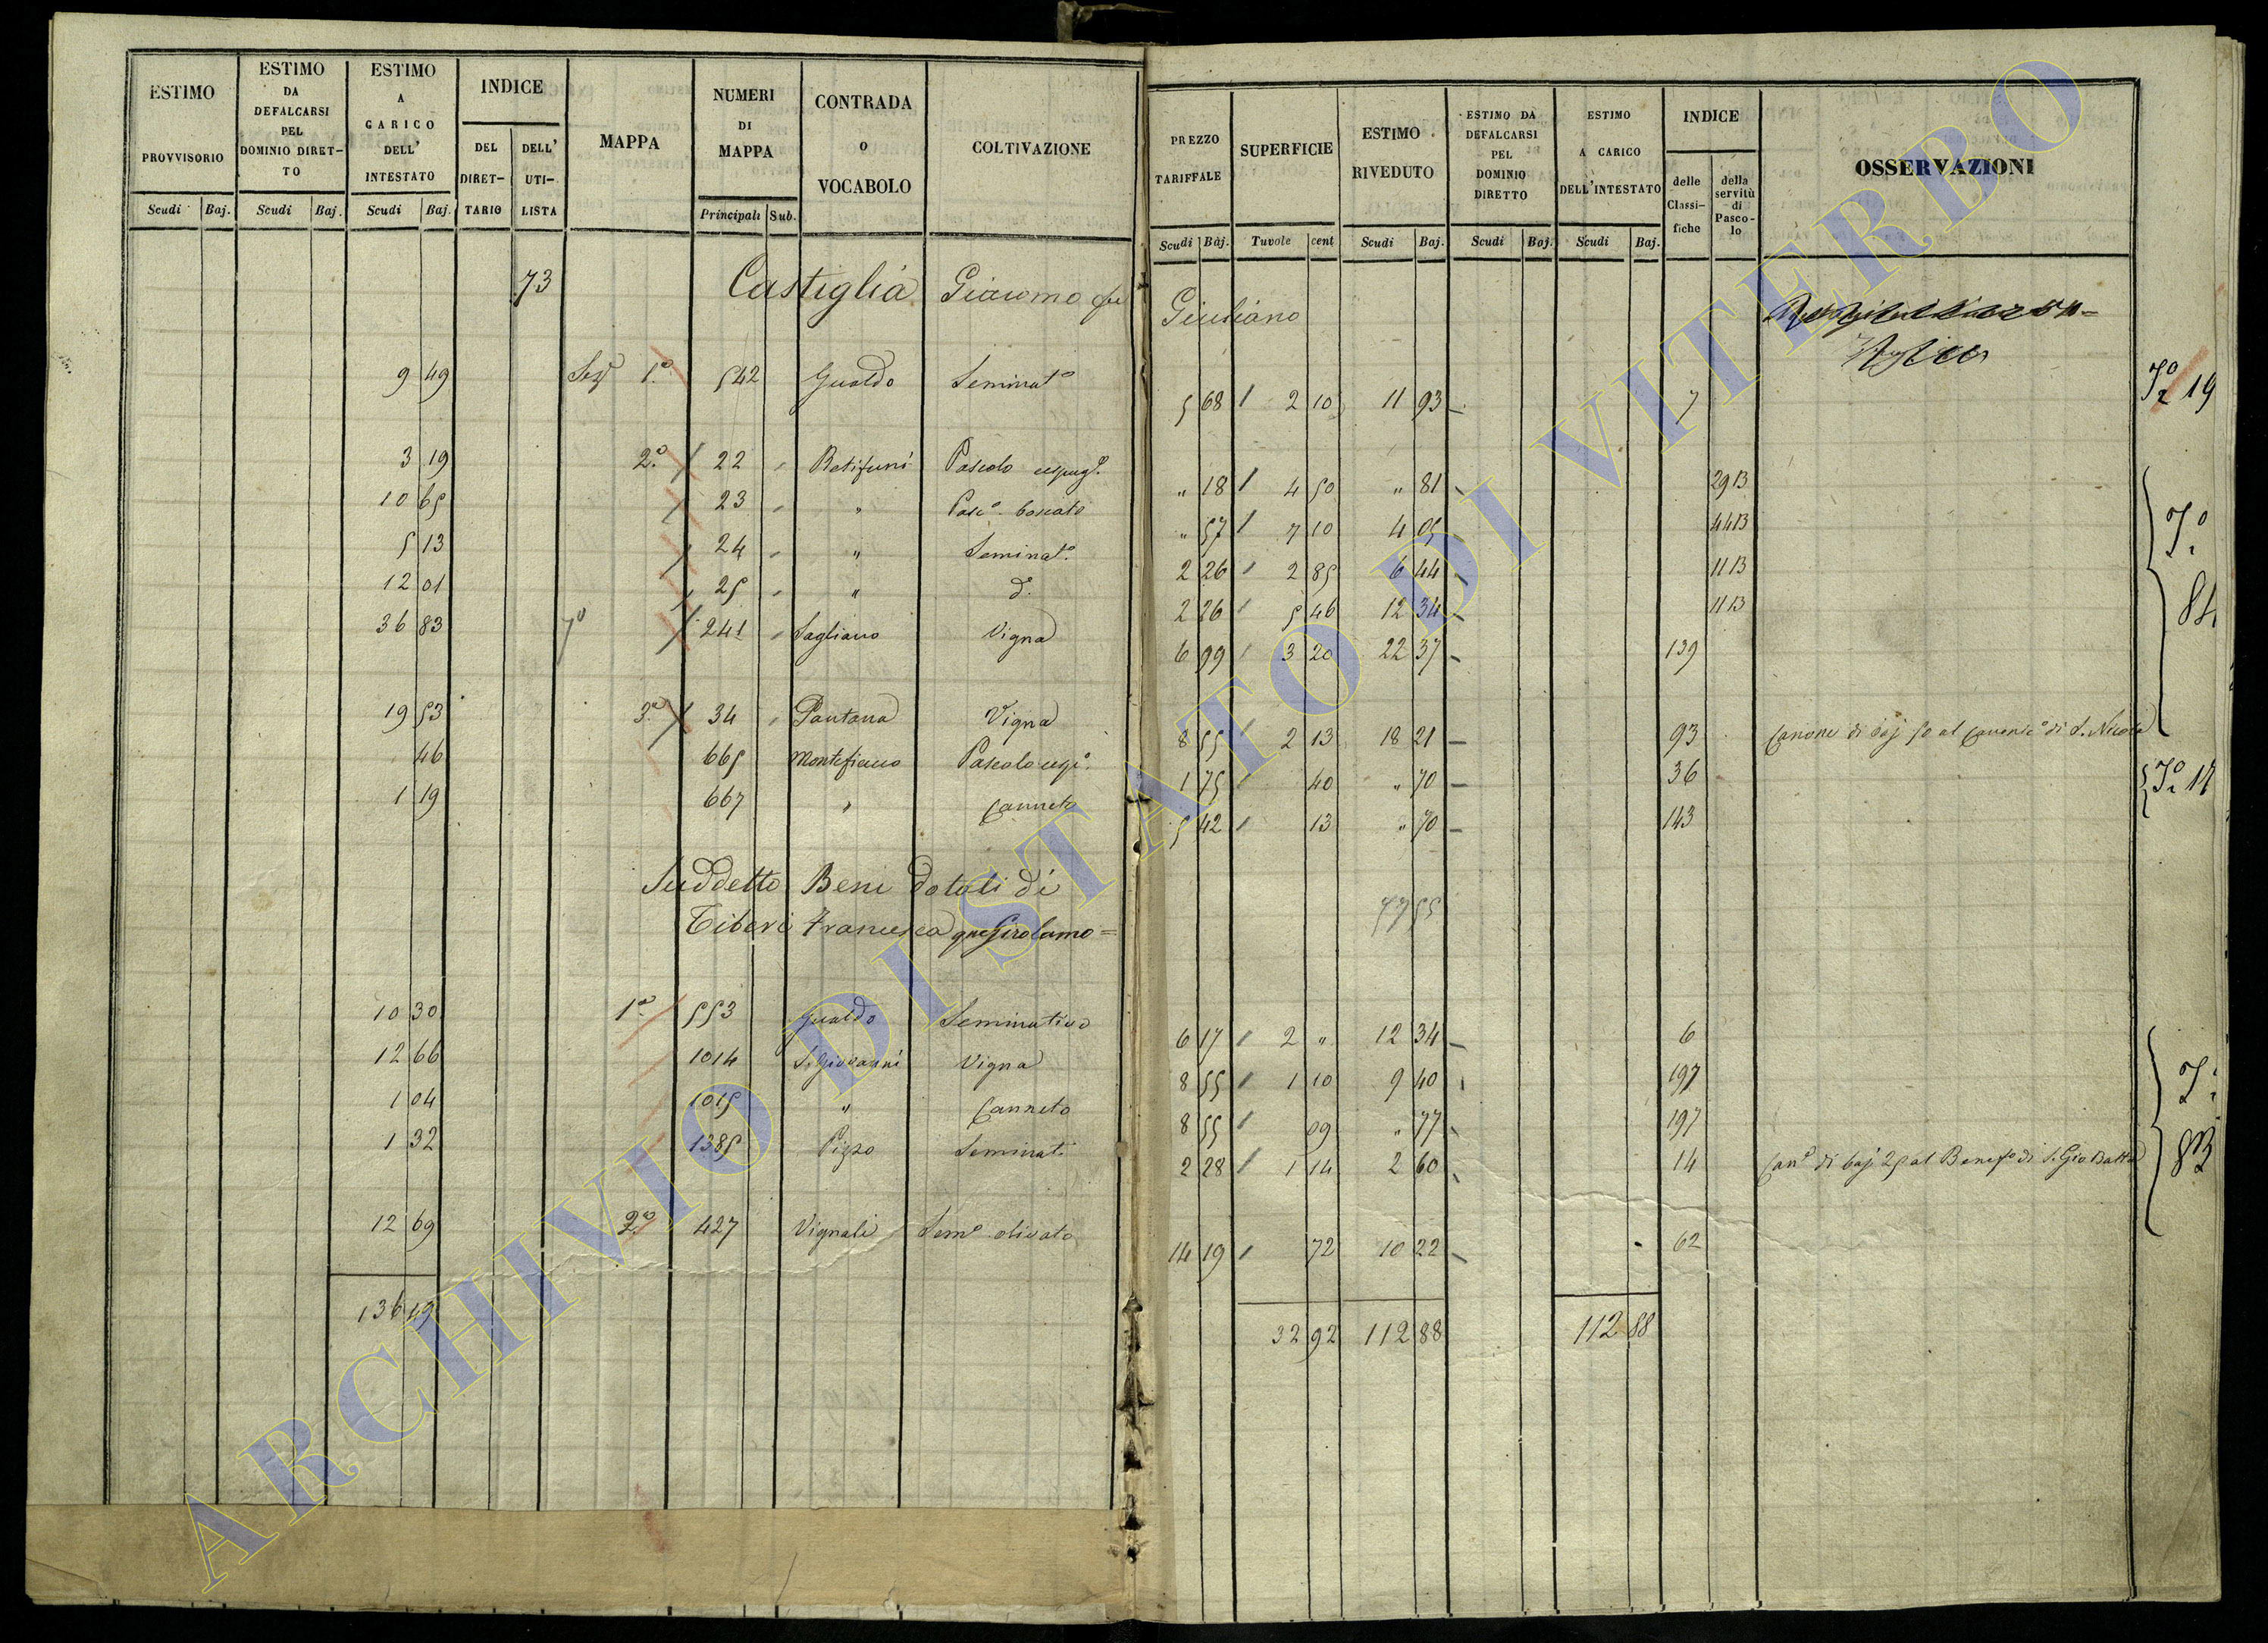 ESTIMO PROVVISORIO Scudi Baj.
ESTIMO DA DEFALCARSI PEL DOMINIO DIRET-TO Scudi Baj.
ESTIMO A CARICO DELL' INTESTATO Scudi Baj.
INDICE DEL DIRET-TARIO DELL' UTI-LISTA
MAPPA
NUMERI DI MAPPA Principali Sub.
CONTRADA O VOCABOLO
COLTIVAZIONE
PREZZO TARIFFALE Scudi Baj.
SUPERFICIE Tavole cent
ESTIMO RIVEDUTO Scudi Baj.
ESTIMO DA DEFALCARSI PEL DOMINIO DIRETTO Scudi Baj.
ESTIMO A CARICO DELL'INTESTATO Scudi Baj.
INDICE delle Classi-fiche della servitù di Pasco-lo
OSSERVAZIONI
73 Castiglia Giacomo fu Giuliano
9 49 Sezᵉ 1ª 542 Gualdo Seminatº 5 68 2 10 11 93 7
3 19 2ª 22 Batifuni Pascolo cespugº 18 4 50 " 81 29 13
10 65 23 " Pascº boscato " 57 7 10 4 05 44 13
5 13 24 " Seminatº 2 26 2 85 6 44 11 13
12 01 25 " dº 2 26 5 46 12 34 11 13
36 83 241 Sagliano Vigna 6 99 3 20 22 37 139
19 53 3ª 34 Pantana Vigna 8 55 2 13 18 21 93 Canone di baj 50 al Canonicº di S. Nicola
46 665 Montefiano Pascolo 1 75 40 " 70 36
1 19 667 " Canneto 5 42 13 " 70 143
Suddetto Beni dotali di
Tiberi Francesca qm Girolamo =
77 55
10 30 1ª 553 Gualdo Seminativo 6 17 2 " 12 34 6
12 66 1014 S. Giovanni Vigna 8 55 1 10 9 40 197
1 04 1015 " Canneto 8 55 09 " 77 197
1 32 1385 Pizzo Seminatº 2 28 1 14 2 60 14 Canº di baj 25 al Benefº di S. Gio Batta
12 69 2ª 427 Vignali Semº olivato 14 19 72 10 22 62
136 49 32 92 112 88 112 88
ARCHIVIO DI STATO DI VITERBO